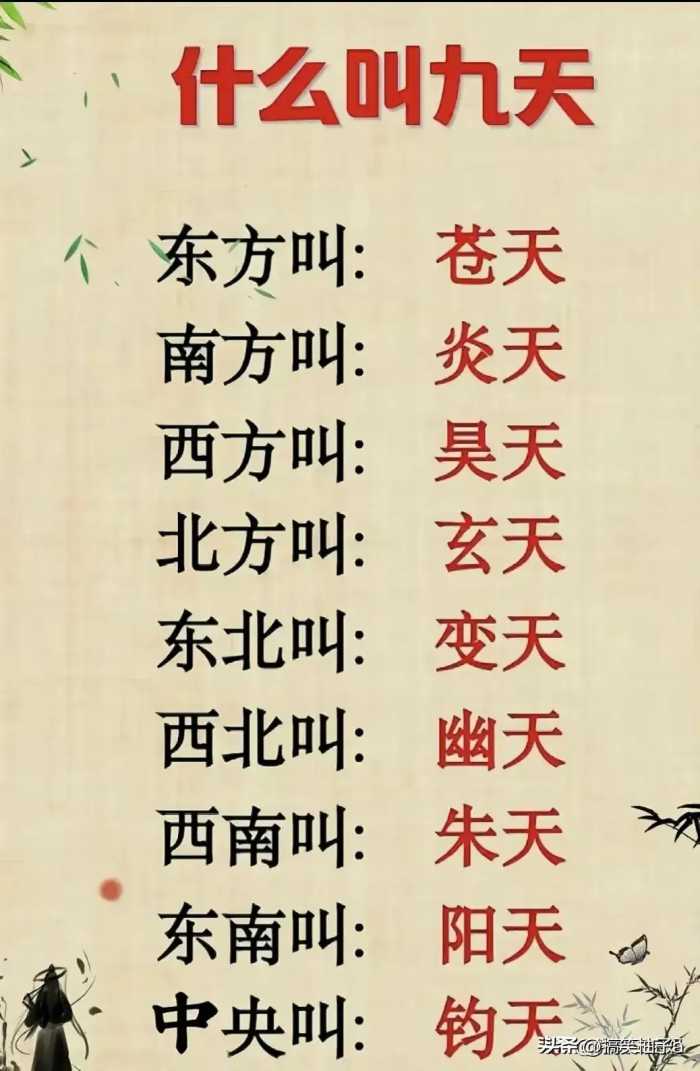 什么叫九天
东方叫: 苍天
南方叫: 炎天
西方叫: 昊天
北方叫: 玄天
东北叫: 变天
西北叫: 幽天
西南叫: 朱天
东南叫: 阳天
中央叫: 钧天
头条 @搞笑